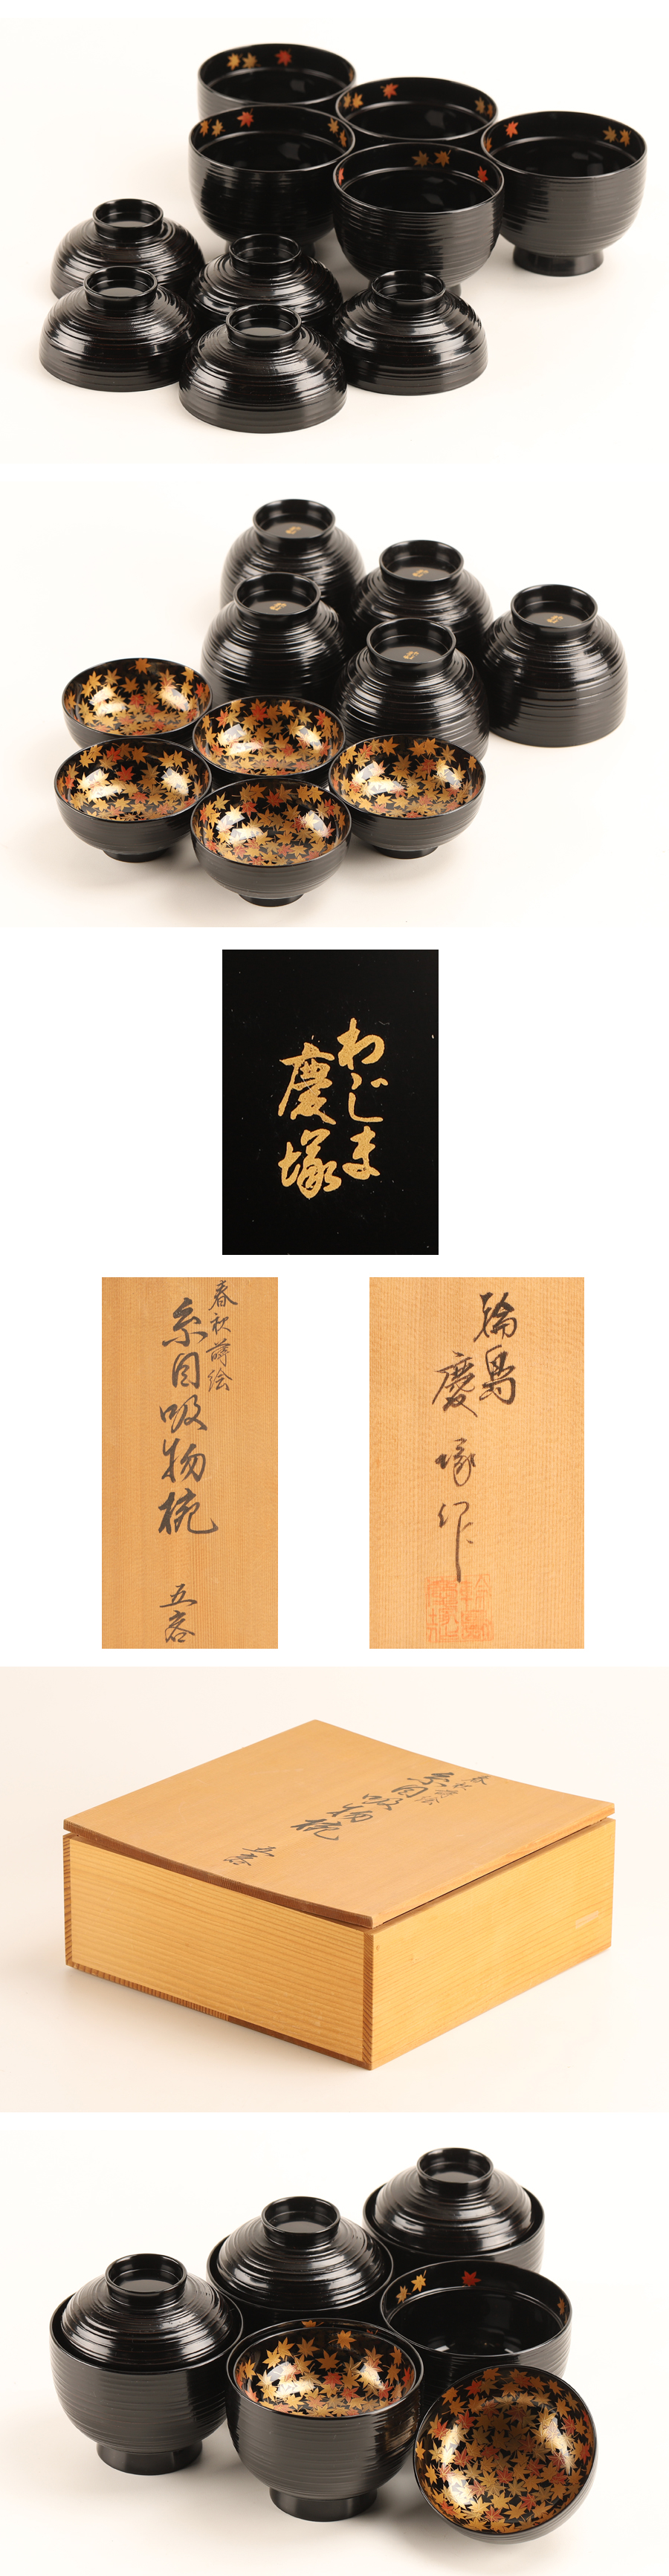 わじま
慶塚
春秋蒔絵
糸目吸物椀
五客
輪島
慶塚作
春秋蒔絵
糸目吸物椀
五客